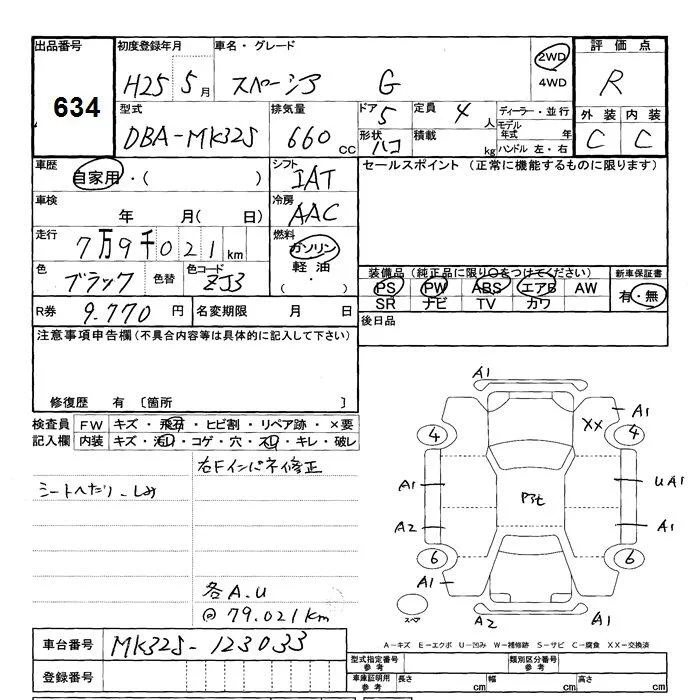 出品番号 初度登録年月 車名・グレード 評価点
634 H25 5月 スペーシア G 2WD 4WD R
型式 排気量 ドア 5 定員 4人 ディーラー・並行 外装 内装
DBA-MK32S 660cc 形状 ハコ 積載 kg モデル年式 年 ハンドル 左・右 C C
車歴 自家用・( ) シフト IAT セールスポイント (正常に機能するものに限ります)
車検 年 月( 日) 冷房 AAC
走行 7万9千021km 燃料 ガソリン 軽油 ( ・ )
色 ブラック 色替 色コード ZJ3
装備品(純正品に限り○をつけてください) 新車保証書
PS PW ABS エアB AW 有・無
SR ナビ TV カワ
R券 9.770円 名変期限 月 日 後日品
注意事項申告欄(不具合内容等は具体的に記入して下さい)
修復歴 有 〔箇所 〕
検査員 FW キズ・飛石・ヒビ割・リペア跡・×要
記入欄 内装 キズ・汚し・コゲ・穴・スレ・キレ・破レ
右Fインパネ修正
シートへたり、しみ
各A.U
@79.021km
A1
XX A1
4 4
A1 UA1
A2 A1
6 6
A1
スペア A2 A1
車台番号 MK32S-123033
A-キズ E-エクボ U-凹み W-補修跡 S-サビ C-腐食 XX-交換済
型式指定番号 参考 類別区分番号 参考
登録番号 車庫証明用 参考 長さ cm 幅 cm 高さ cm